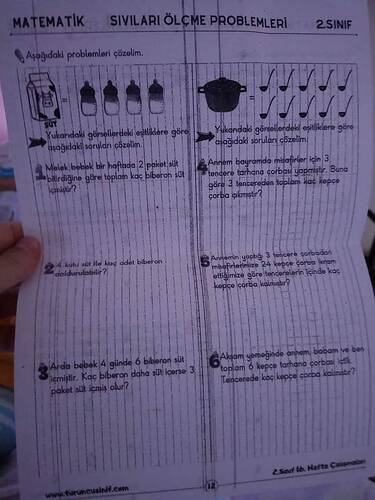 MATEMATİK SIVILARI ÖLÇME PROBLEMLERİ 2.SINIF
Aşağıdaki problemleri çözelim.
SÜT
=
=
Yukarıdaki görsellerdeki eşitliklere göre
aşağıdaki soruları çözelim.
1 Melek bebek bir haftada 2 paket süt
bitirdiğine göre toplam kaç biberon süt
içmiştir?
2 4 kutu süt ile kaç adet biberon
doldurulabilir?
3 Arda bebek 4 günde 6 biberon süt
içmiştir. Kaç biberon daha süt içerse 3
paket süt içmiş olur?
Yukarıdaki görsellerdeki eşitliklere göre
aşağıdaki soruları çözelim.
4 Annem bayramda misafirler için 3
tencere tarhana çorbası yapmıştır. Buna
göre 3 tencereden toplam kaç kepçe
çorba çıkmıştır?
5 Annemin yaptığı 3 tencere çorbadan
misafirlerimize 24 kepçe çorba ikram
ettiğimize göre tencerelerin içinde kaç
kepçe çorba kalmıştır?
6 Akşam yemeğinde annem, babam ve ben
toplam 6 kepçe tarhana çorbası içtik.
Tencerede kaç kepçe çorba kalmıştır?
www.turuncusinif.com
12
2.Sınıf 16. Hafta Çalışmaları